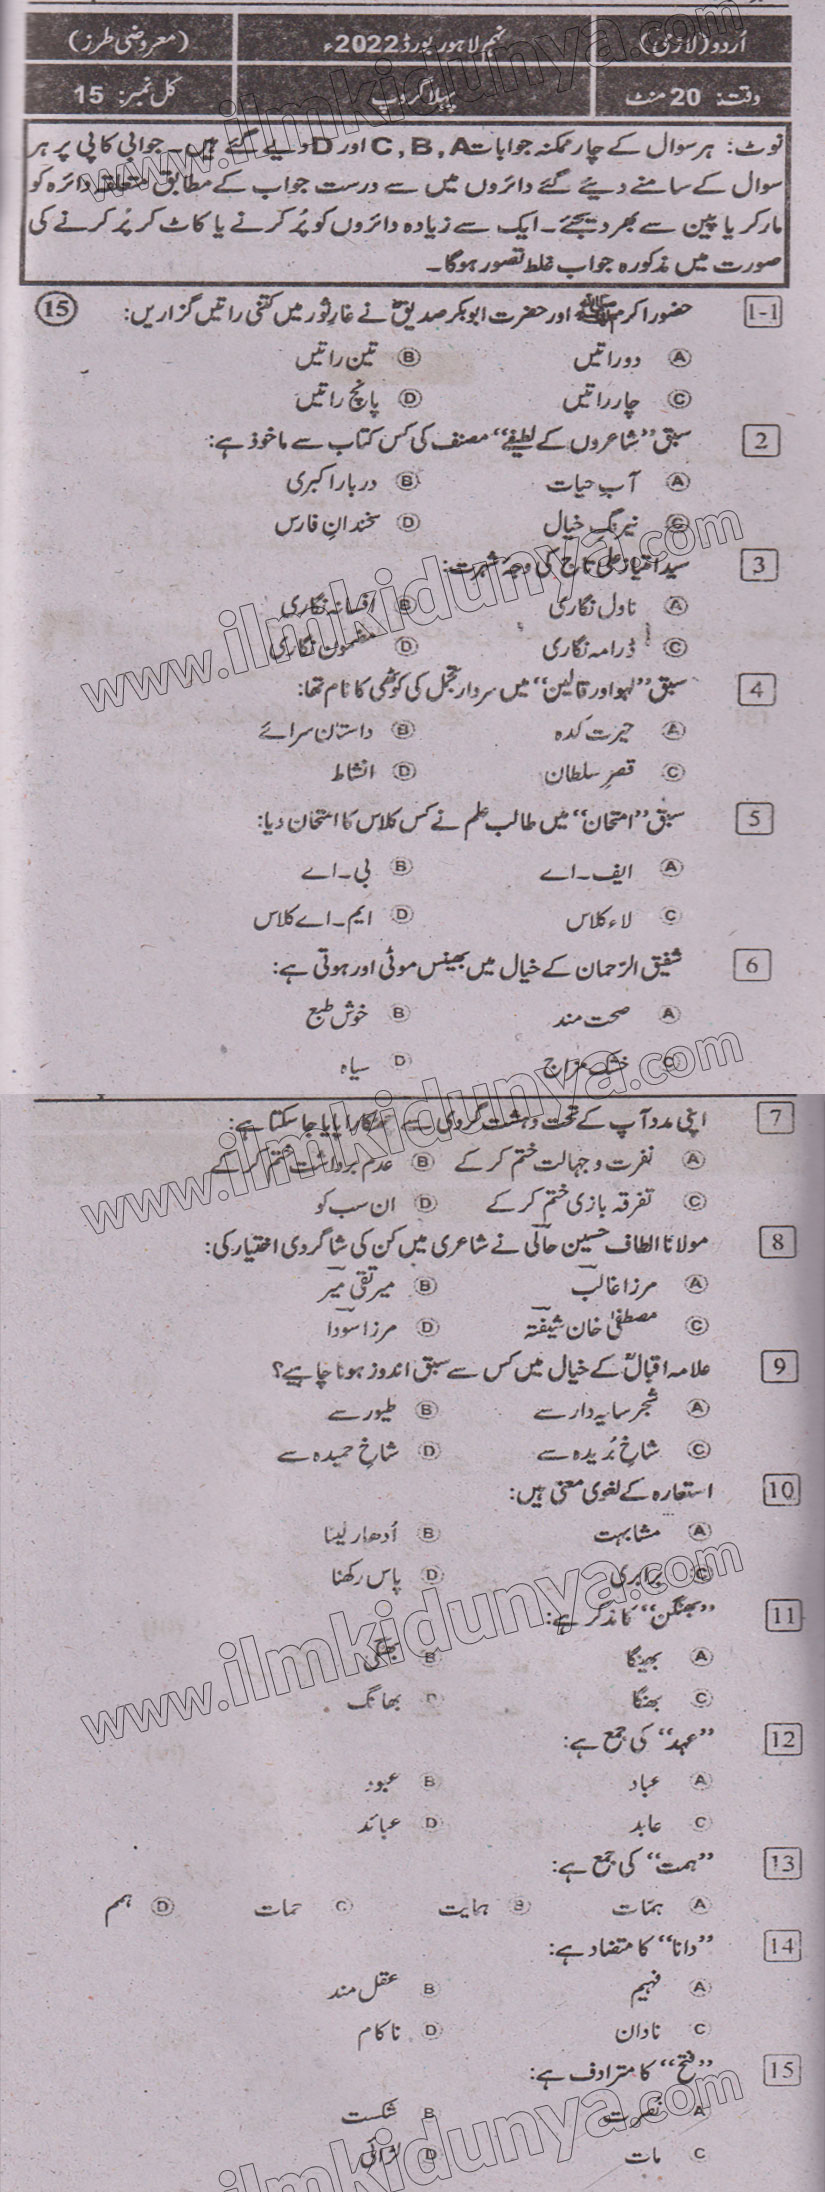 اُردو (لازمی) نہم لاہور بورڈ 2022ء (معروضی طرز)
وقت: 20 منٹ پہلا گروپ کل نمبر: 15
نوٹ: ہر سوال کے چار ممکنہ جوابات A، B، C اور D دیے گئے ہیں۔ جوابی کاپی پر ہر
سوال کے سامنے دیئے گئے دائروں میں سے درست جواب کے مطابق متعلقہ دائرہ کو
مارکر یا پین سے بھر دیجئے۔ ایک سے زیادہ دائروں کو پُر کرنے یا کاٹ کر پُر کرنے کی
صورت میں مذکورہ جواب غلط تصور ہوگا۔
1-1 حضور اکرم ﷺ اور حضرت ابوبکر صدیقؓ نے غارِ ثور میں کتنی راتیں گزاریں: 15
A دو راتیں B تین راتیں
C چار راتیں D پانچ راتیں
2 سبق ”شاعروں کے لطیفے“ مصنف کی کس کتاب سے ماخوذ ہے:
A آبِ حیات B دربار اکبری
C نیرنگِ خیال D سخندانِ فارس
3 سید امتیاز علی تاج کی وجۂ شہرت:
A ناول نگاری B افسانہ نگاری
C ڈرامہ نگاری D مضمون نگاری
4 سبق ”لہو اور قالین“ میں سردار تجمل کی کوٹھی کا نام تھا:
A حیرت کدہ B داستان سرائے
C قصرِ سلطان D النشاط
5 سبق ”امتحان“ میں طالب علم نے کس کلاس کا امتحان دیا:
A ایف۔اے B بی۔اے
C لاء کلاس D ایم۔اے کلاس
6 شفیق الرّحمان کے خیال میں بھینس موٹی اور ہوتی ہے:
A صحت مند B خوش طبع
C خشک مزاج D سیاہ
7 اپنی مدد آپ کے تحت دہشت گردی سے چھٹکارا پایا جا سکتا ہے:
A نفرت و جہالت ختم کر کے B عدم برداشت ختم کر کے
C تفرقہ بازی ختم کر کے D ان سب کو
8 مولانا الطاف حسین حالی نے شاعری میں کن کی شاگردی اختیار کی:
A مرزا غالب B میر تقی میر
C مصطفیٰ خان شیفتہ D مرزا سودا
9 علامہ اقبالؒ کے خیال میں کس سے سبق اندوز ہونا چاہیے؟
A شجر سایہ دار سے B طیور سے
C شاخِ بُریدہ سے D شاخِ خمیدہ سے
10 استعارہ کے لغوی معنی ہیں:
A مشابہت B اُدھار لینا
C برابری D پاس رکھنا
11 ”بھنگن“ کا مذکر ہے:
A بھینگا B بھنگی
C بھنگا D بھانگ
12 ”عہد“ کی جمع ہے:
A عباد B عبود
C عابد D عبائد
13 ”ہمت“ کی جمع ہے:
A ہمّات B ہمایت C حمات D ہمم
14 ”دانا“ کا متضاد ہے:
A فہیم B عقل مند
C نادان D ناکام
15 ”فتح“ کا مترادف ہے:
A نُصرت B شکست
C مات D لڑائی
www.ilmkidunya.com
www.ilmkidunya.com
www.ilmkidunya.com
www.ilmkidunya.com
www.ilmkidunya.com